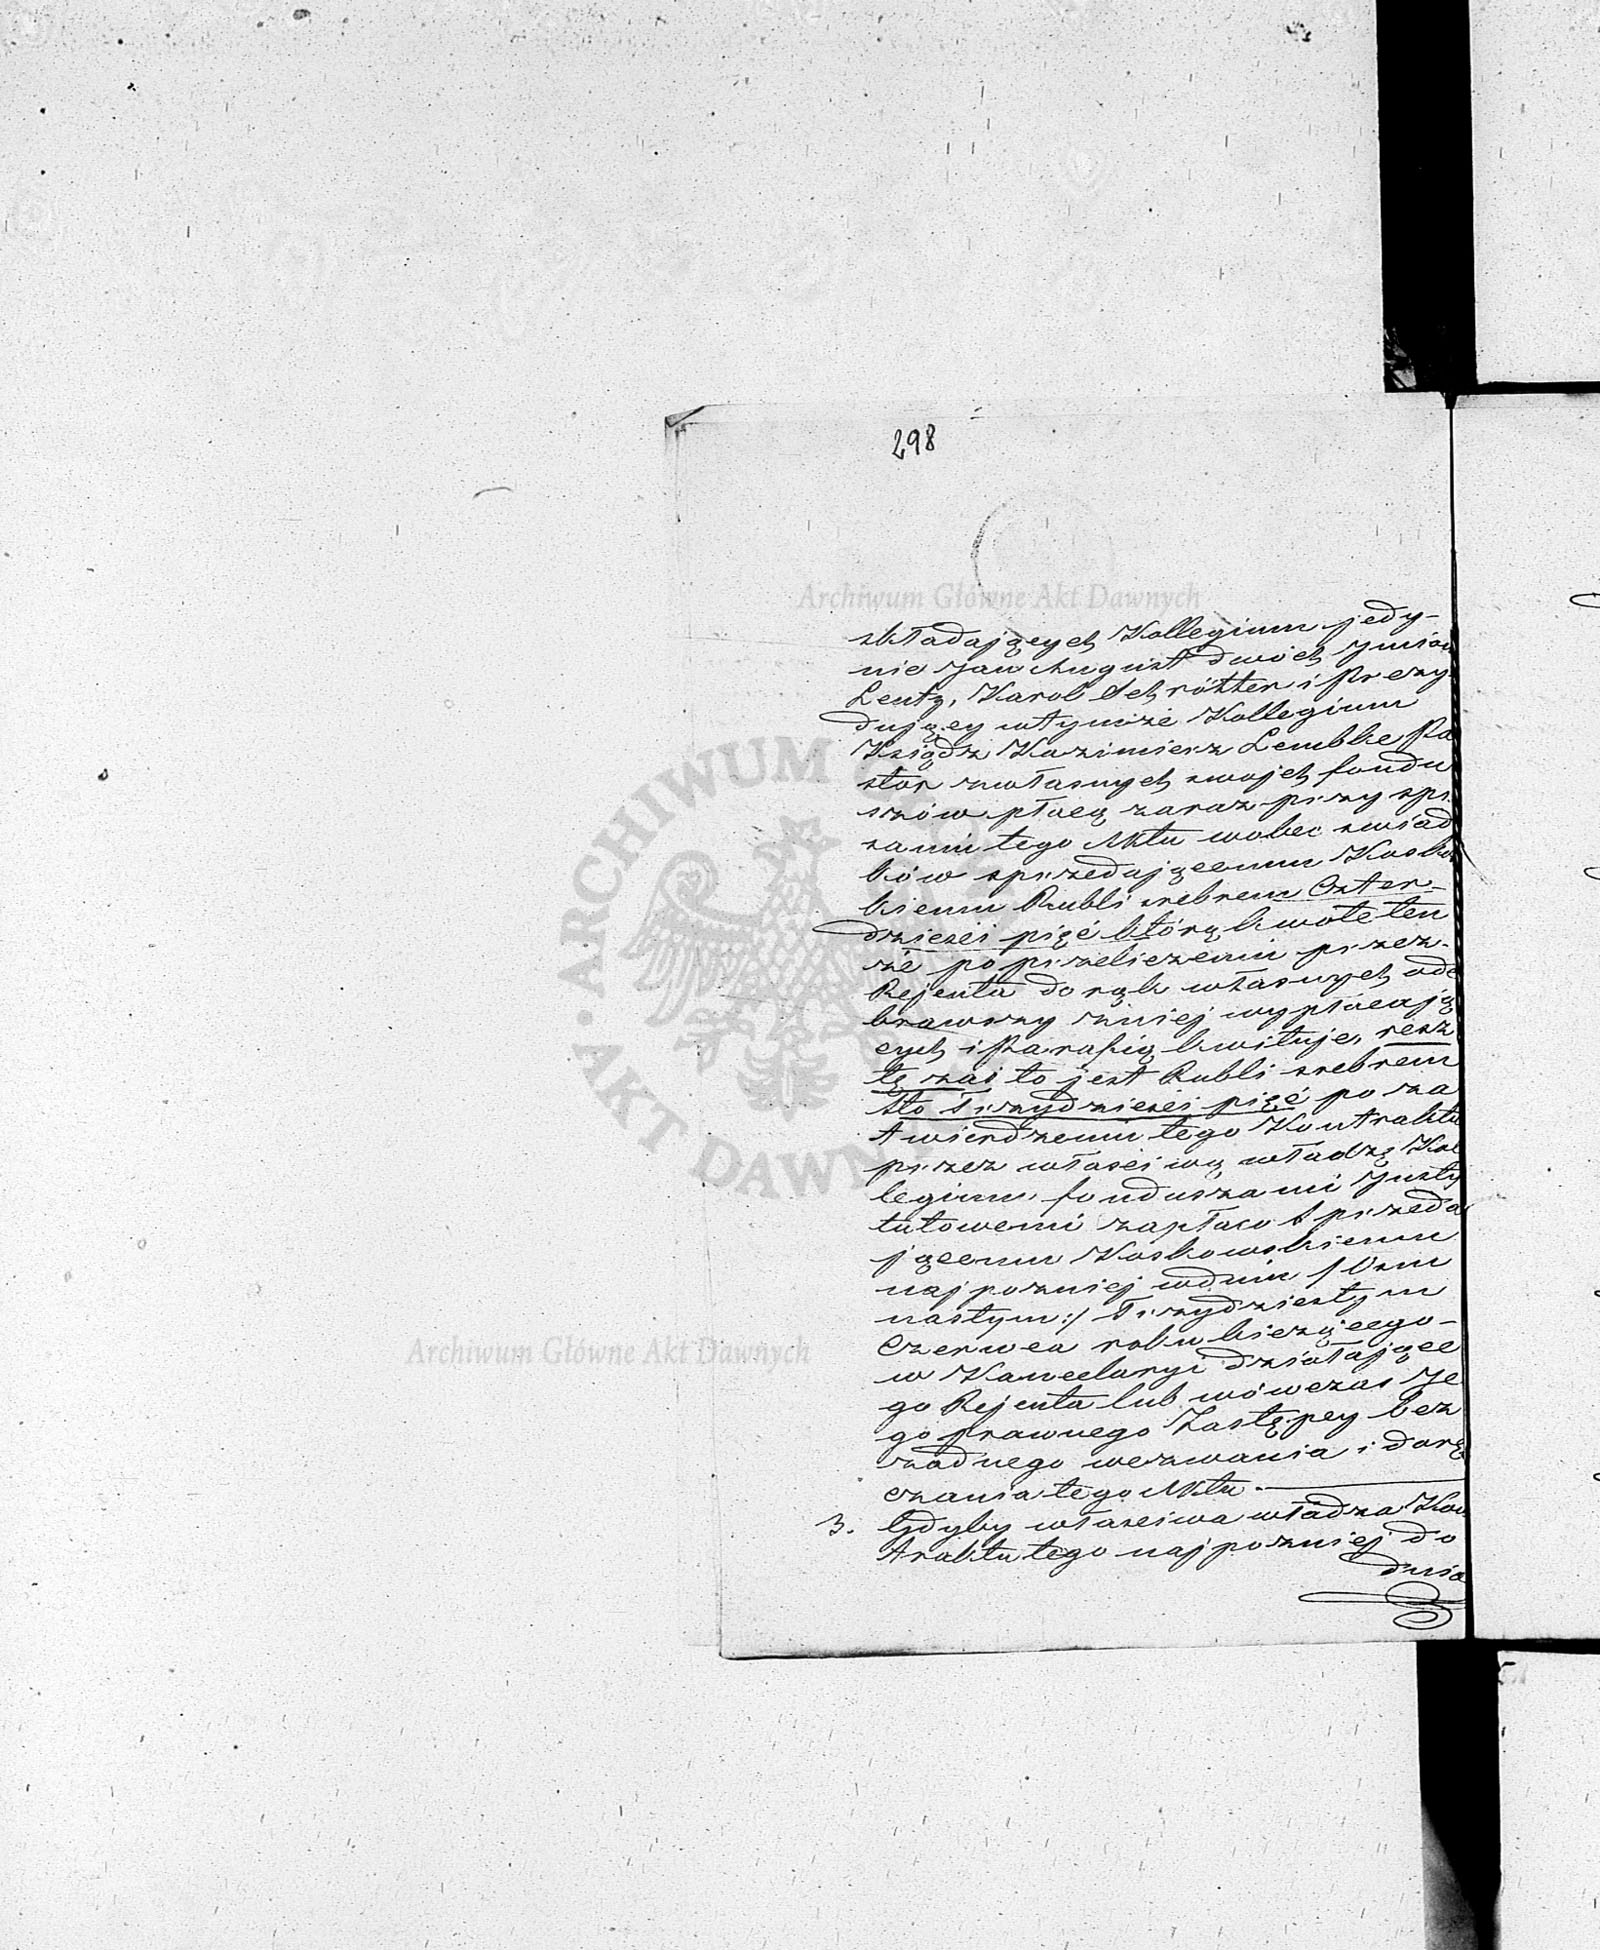 298
składających Kollegium jedy-
nie Jan August dwóch Imion
Lentz, Karol Schrötter i Prezy
dujący w tymże Kollegium
Ksiądz Kazimierz Lembke Pa
stor z własnych swojch fundu
szów płacą zaraz przy spi
saniu tego Aktu wobec świad
ków sprzedającemu Kosko
kiemu Rubli srebrem Czter-
dzieści pięć którą kwotę ten
że po przeliczeniu przez-
Rejenta do rąk własnych ode
brawszy z niej wypłacają
cych i Parafią kwituje, resz
tę zaś to jest Rubli srebrem
Sto Trzydzieści pięć po za
twierdzeniu tego Kontraktu
przez właściwą władzę Kol
legium funduszami Insty
tutowemi zapłaci Sprzeda
jącemu Koskowskiemu
najpozniej w dniu /:Osm
nastym:/ Trzydziestym
Czerwca roku bieżącego-
w Kancelaryi działające
go Rejenta lub wówczas Je
go prawnego Zastępcy bez
żadnego wezwania i dorę
czania tego Aktu.
3. Gdyby właściwa władza Kon
traktu tego najpozniej do
dnia
Archiwum Główne Akt Dawnych
Archiwum Główne Akt Dawnych